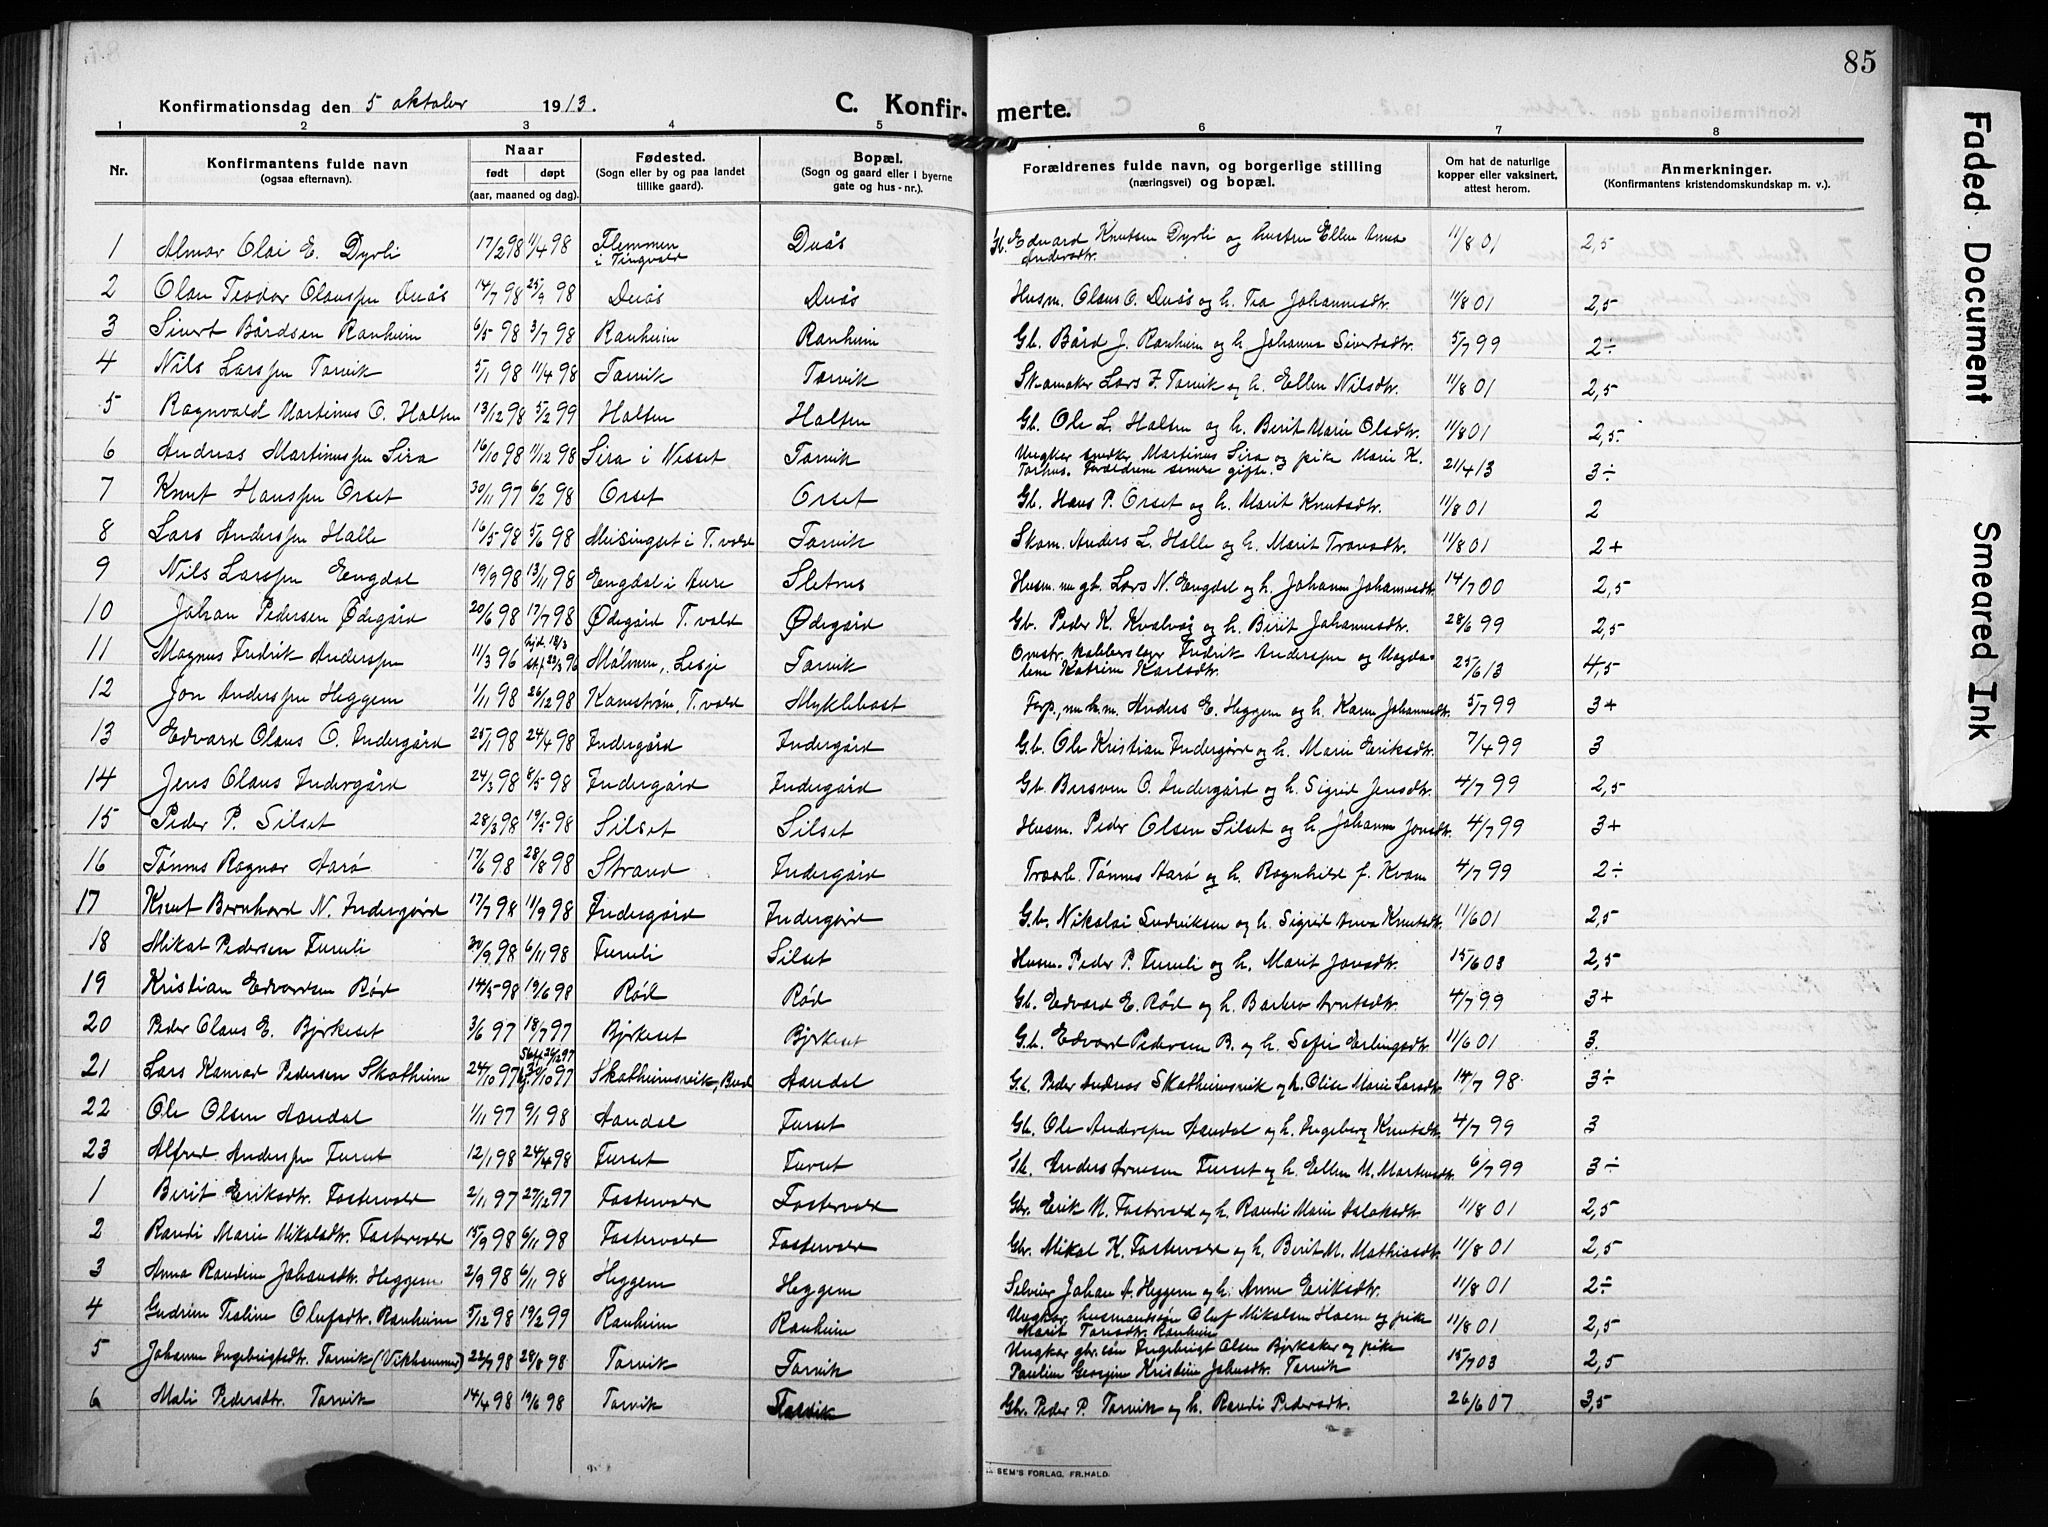 85
Konfirmationsdag den 5 oktober 1913.
C. Konfirmerte.
1 2 3 4 5 6 7 8
Nr.
Konfirmantens fulde navn
(ogsaa efternavn).
Naar
født døpt
(aar, maaned og dag).
Fødested.
(Sogn eller by og paa landet
tillike gaard).
Bopæl.
(Sogn og gaard eller i byerne
gate og hus - nr.).
Forældrenes fulde navn, og borgerlige stilling
(næringsvei) og bopæl.
Om hat de naturlige
kopper eller vaksinert,
attest herom.
Anmerkninger.
(Konfirmantens kristendomskundskap m. v.).
1 Almar Olai E. Dyrli 17/2 98 11/4 98 Flemmen i Tingvold Duås Gb. Edvard Knutsen Dyrli og hustru Ellen Anna Andersdtr. 11/8 01 2,5
2 Olav Teodor Olaussen Duås 14/7 98 25/9 98 Duås Duås Husm. Olaus O. Duås og h. Tea Johannesdtr. 11/8 01 2,5
3 Sivert Bårdsen Ranheim 6/5 98 3/7 98 Ranheim Ranheim Gb. Bård J. Ranheim og h. Johanna Sivertsdtr. 5/7 99 2÷
4 Nils Larssen Torvik 5/1 98 11/4 98 Torvik Torvik Skomaker Lars J. Torvik og h. Ellen Nilsdtr. 11/8 01 2,5
5 Ragnvald Martinus O. Halsen 13/12 98 5/2 99 Halsen Halsen Gb. Ole L. Halsen og h. Berit Marie Olsdtr. 11/8 01 2,5
6 Andreas Martinussen Sira 16/10 98 11/12 98 Sira i Nesset Torvik Ungkar snedker Martinus Sira og pike Marie K. Torhus. Forældrene senere gifte. 21/4 13 3÷
7 Knut Hanssen Orset 30/11 97 6/2 98 Orset Orset Gb. Hans P. Orset og h. Marit Knutsdtr. 11/8 01 2
8 Lars Anderssen Halle 16/5 98 5/6 98 Meisingset i T.vold Torvik Skom. Anders L. Halle og h. Marit Tronsdtr. 11/8 01 2+
9 Nils Larssen Engdal 19/9 98 13/11 98 Engdal i Aure Sletnes Husm. nu gb. Lars N. Engdal og h. Johanna Johannesdtr. 14/7 00 2,5
10 Johan Pedersen Ødegård 20/6 98 17/7 98 Ødegård T.vold Ødegård Gb. Peder K. Kvalvåg og h. Berit Johannesdtr. 28/6 99 2,5
11 Magnus Fredrik Anderssen 11/3 96 hjd. 18/3 stf. 23/3 96 Mølmen, Lesje Torvik Omstr. kobberslager Fredrik Anderssen og Magdalene Katrine Karlsdtr. 25/6 13 4,5
12 Jon Anderssen Heggem 1/11 98 26/12 98 Kanestrøm, T.vold Myklebost Forp., nu h.m. Anders E. Heggem og h. Karen Johannesdtr. 5/7 99 3+
13 Edvard Olaus O. Indergård 25/1 98 24/4 98 Indergård Indergård G.b. Ole Kristian Indergård og h. Marie Eriksdtr. 7/4 99 3
14 Jens Olaus Indergård 24/3 98 8/5 98 Indergård Indergård Gb. Bersven O. Indergård og h. Sigrid Jensdtr. 4/7 99 2,5
15 Peder P. Silset 28/3 98 19/5 98 Silset Silset Husm. Peder Olsen Silset og h. Johanna Jonsdtr. 4/7 99 3+
16 Tønnes Ragnar Aarø 17/6 98 28/8 98 Strand Indergård Tønnes Aarø og h. Ragnhild f. Kvam 4/7 99 2÷
17 Knut Bernhard N. Indergård 17/7 98 11/9 98 Indergård Indergård G.b. Nikolai Ludviksen og h. Sigrid Anna Knutsdtr. 11/6 01 2,5
18 Mikal Pedersen Furuli 30/9 98 6/11 98 Furuli Silset Husm. Peder P. Furuli og h. Marit Jonsdtr. 15/6 03 2,5
19 Kristian Edvardsen Rød 14/5 98 19/6 98 Rød Rød Gb. Edvard E. Rød og h. Barbro Arntsdtr. 4/7 99 3+
20 Peder Olaus E. Bjerkeset 3/6 97 18/7 97 Bjerkeset Bjerkeset G.b. Edvard Pedersen B. og h. Sofie Erlingsdtr. 11/6 01 3.
21 Lars Konrad Pedersen Skotheim 24/10 97 Stf. 26/12 97 hj. 30/10 97 Skotheimsvik, Bud Aandal Gb. Peder Andreas Skotheimsvik og h. Olise Marie Larsdtr. 14/7 98 3÷
22 Ole Olsen Aandal 1/11 97 9/1 98 Aandal Furset Gb. Ole Anderssen Aandal og h. Ingeborg Knutsdtr. 4/7 99 3
23 Alfred Anderssen Furset 12/1 98 24/4 98 Furset Furset Gb. Anders Arnesen Furset og h. Ellen M. Martensdtr. 6/7 99 3÷
1 Berit Eriksdtr. Fostervold 2/11 97 27/12 97 Fostervold Fostervold Gbr. Erik M. Fostervold og h. Randi Marie Aslaksdtr. 11/8 01 2,5
2 Randi Marie Mikalsdtr. Fostervold 15/9 98 6/11 98 Fostervold Fostervold Gbr. Mikal K. Fostervold og h. Berit M. Mathiasdtr. 11/8 01 2,5
3 Anna Randine Johansdtr. Heggem 2/9 98 6/11 98 Heggem Heggem Selveier Johan A. Heggem og h. Anne Eriksdtr. 11/8 01 2÷
4 Gudrun Tealine Olufsdtr. Ranheim 5/12 98 19/2 99 Ranheim Ranheim Ungkar husmandssøn Oluf Mikalsen Hoem og pike Marit Tomsdtr. Ranheim 11/8 01 2,5
5 Johanna Ingebrigtsdtr. Torvik (Vikhammer) 22/7 98 28/8 98 Torvik Torvik Ungkar gbr.søn Ingebrigt Olsen Bjerkaker og pike Pauline Georgine Kristine Johnsdtr. Torvik 15/7 03 2,5
6 Mali Pedersdtr. Torvik 14/4 98 19/6 98 Torvik Torvik Gbr. Peder P. Torvik og h. Randi Pedersdtr. 26/6 07 3,5
SEM'S FORLAG, FR.HALD.
Faded Document
Smeared Ink